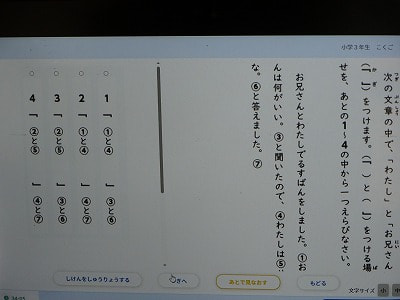 小学3年生 こくご
次の文章の中で、「わたし」と「お兄さん
(「 」)をつけます。(「 )と( 」)をつける場
せを、あとの1〜4の中から一つえらびなさい。
お兄さんとわたしでるすばんをしました。①お
んは何がいい。③と聞いたので、④わたしは⑤
な。⑥と答えました。⑦
1 「 ①と④ 」 ③と⑥
2 「 ①と④ 」 ④と⑦
3 「 ②と⑤ 」 ③と⑥
4 「 ②と⑤ 」 ④と⑦
しけんをしゅうりょうする
つぎへ
あとで見なおす
もどる
文字サイズ 小 中